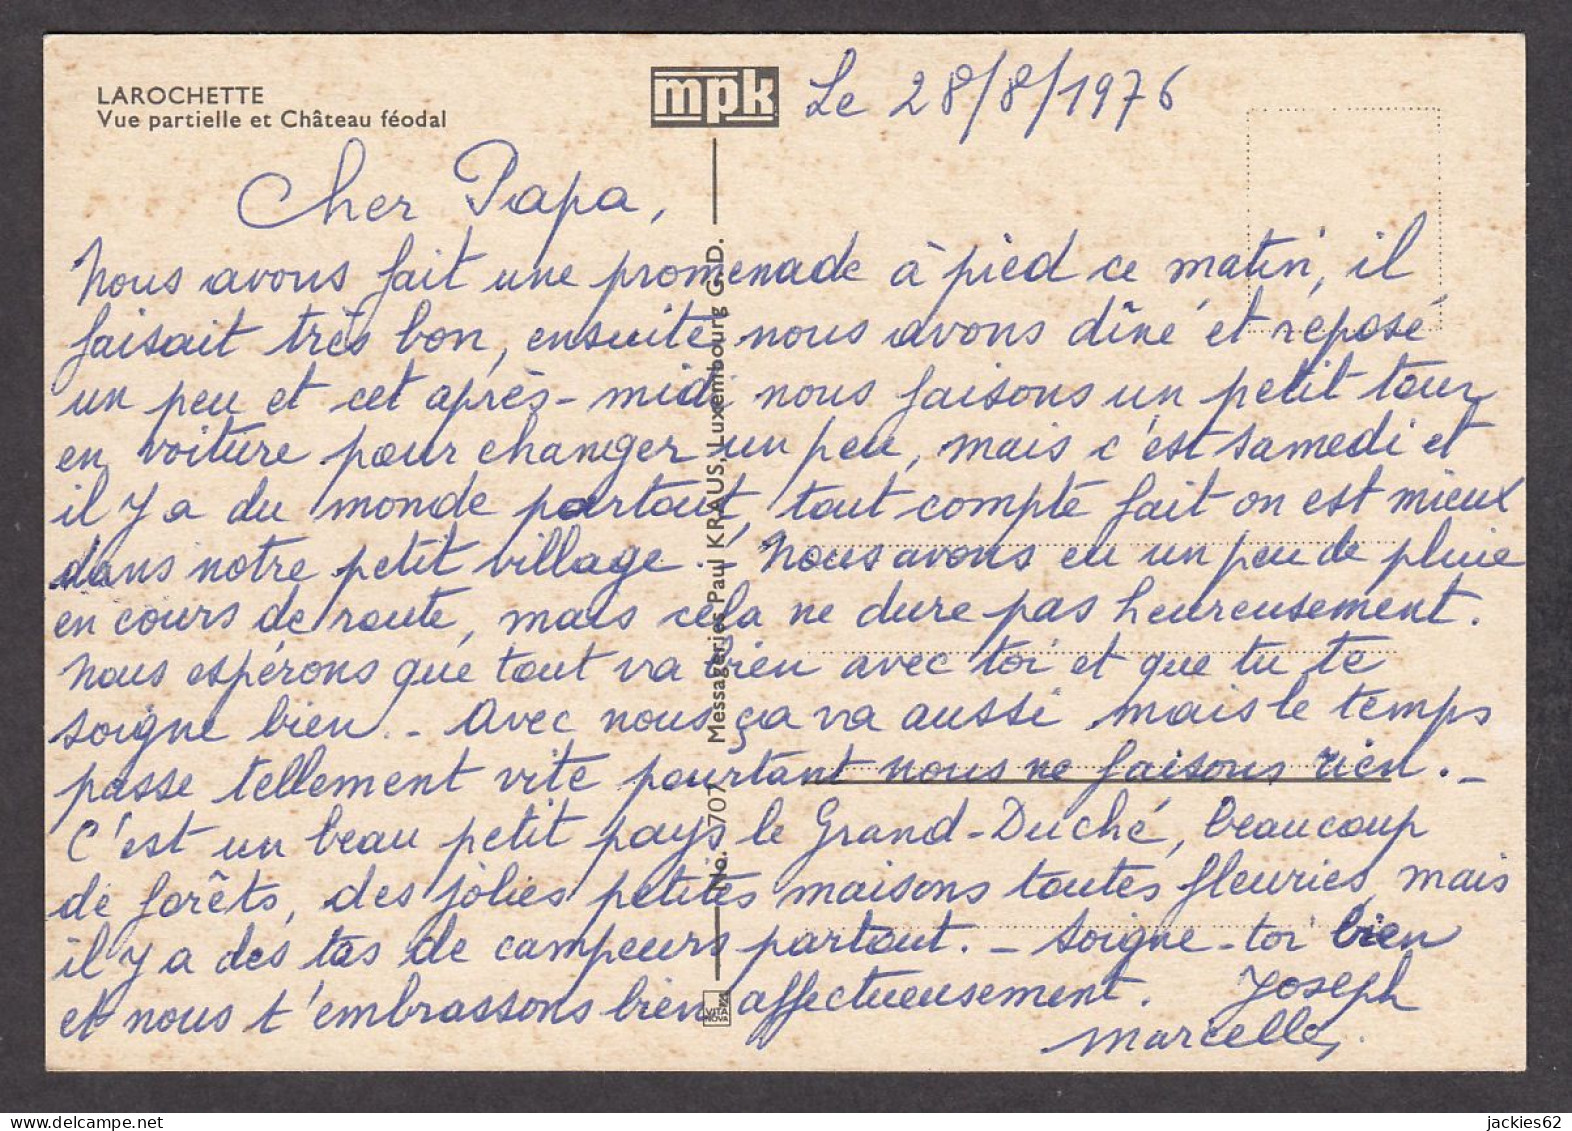 LAROCHETTE
Vue partielle et Château féodal
mpk
Le 28/8/1976
Cher Papa,
Nous avons fait une promenade à pied ce matin, il
faisait très bon, ensuite nous avons dîné et reposé
un peu et cet après-midi nous faisons un petit tour
en voiture pour changer un peu, mais c'est samedi et
il y a du monde partout, tout compte fait on est mieux
dans notre petit village.- Nous avons eu un peu de pluie
en cours de route, mais cela ne dure pas heureusement.
Nous espérons que tout va bien avec toi et que tu te
soigne bien.- Avec nous ça va aussi mais le temps
passe tellement vite pourtant nous ne faisons rien.-
C'est un beau petit pays le Grand-Duché, beaucoup
de forêts, des jolies petites maisons toutes fleuries, mais
il y a des tas de campeurs partout.- Soigne-toi bien
et nous t'embrassons bien affectueusement. Joseph
Marcelle
No. 707 Messageries Paul KRAUS, Luxembourg G.D.
VITA NOVA
jackies62